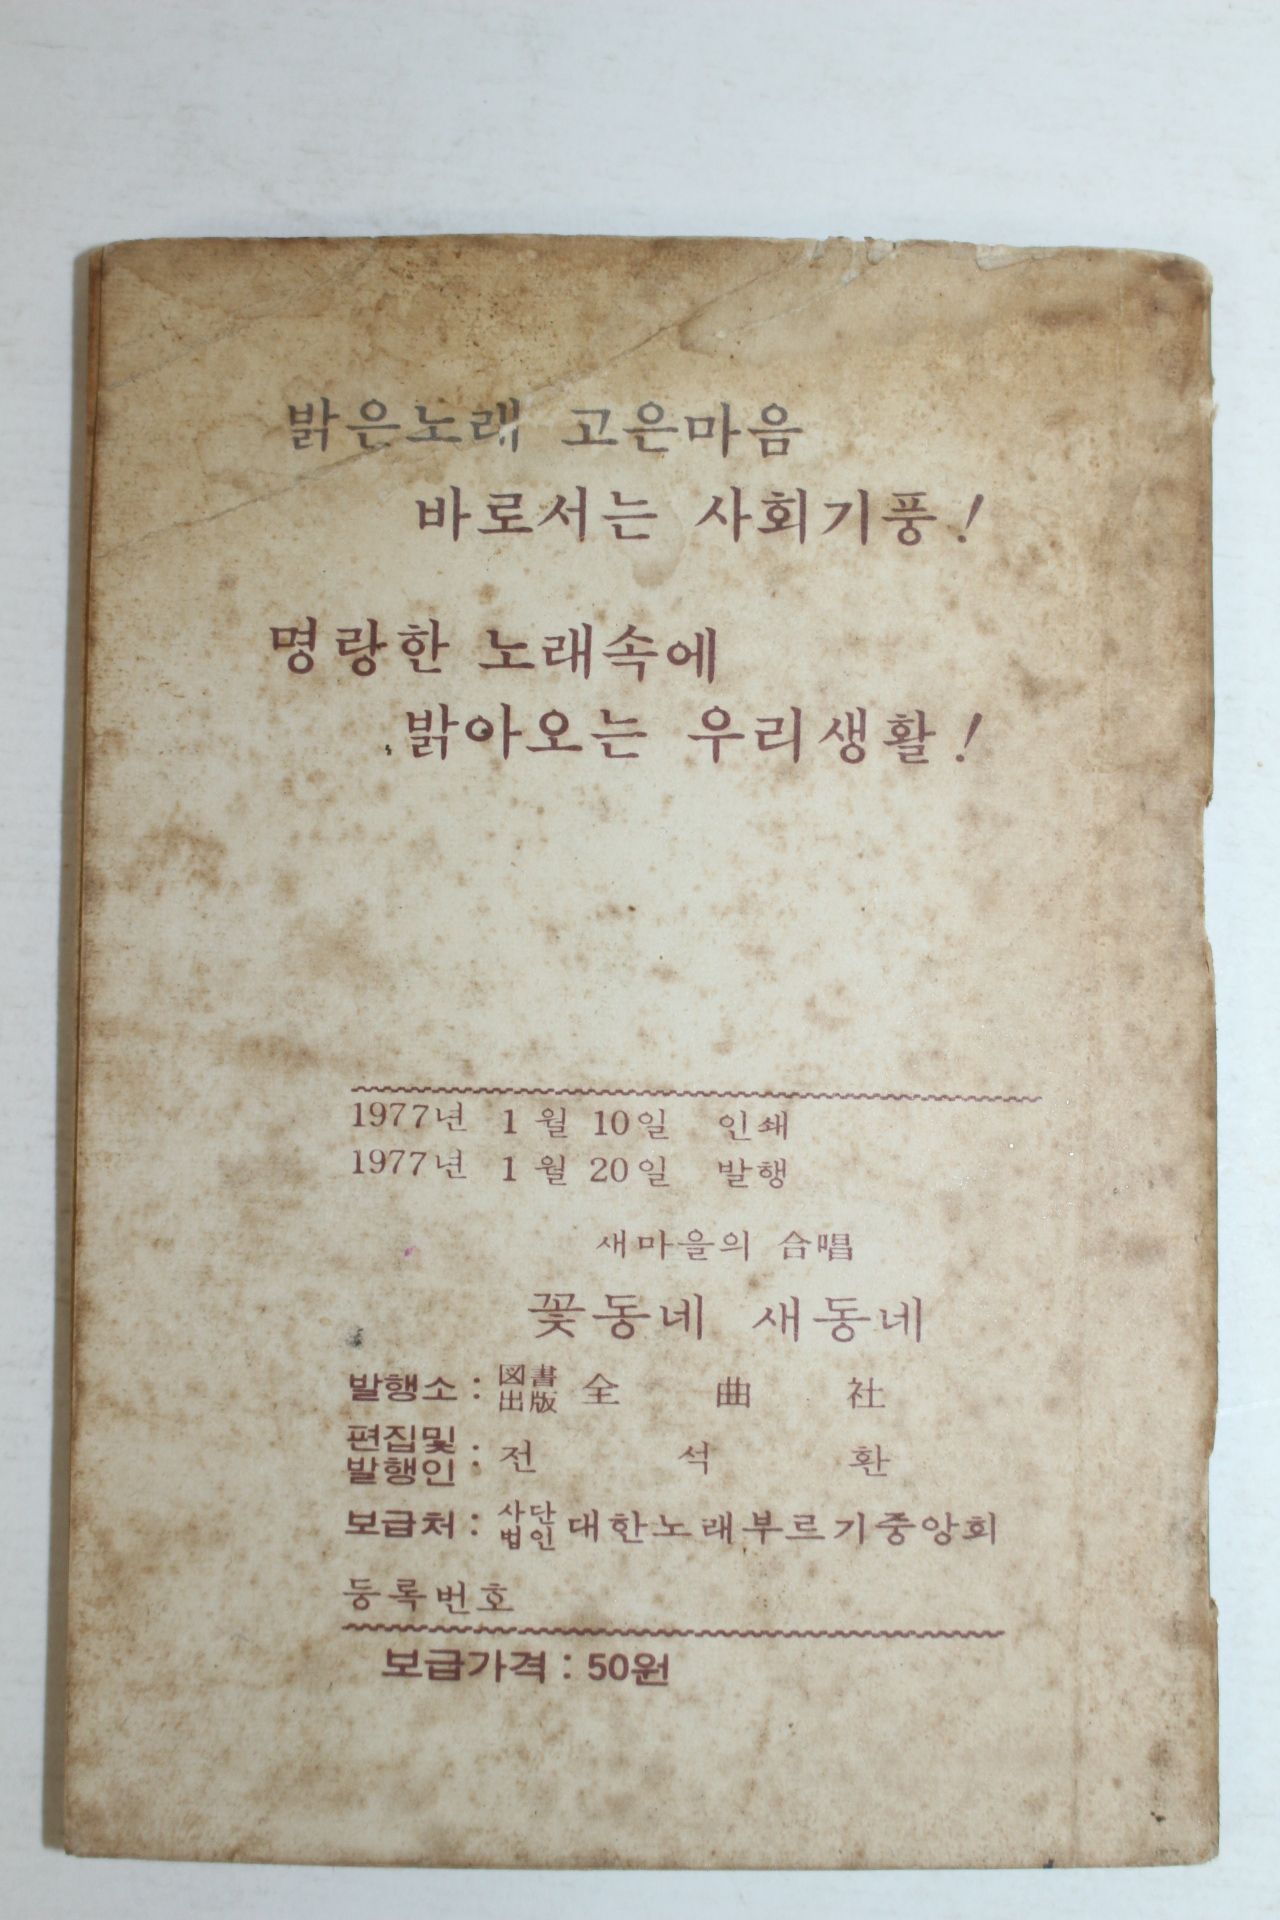 밝은노래 고은마음
바로서는 사회기풍!
명랑한 노래속에
밝아오는 우리생활!
1977년 1월 10일 인쇄
1977년 1월 20일 발행
새마을의 合唱
꽃동네 새동네
발행소 : 図書出版 全曲社
편집및발행인 : 전석환
보급처 : 사단법인 대한노래부르기중앙회
등록번호
보급가격 : 50원